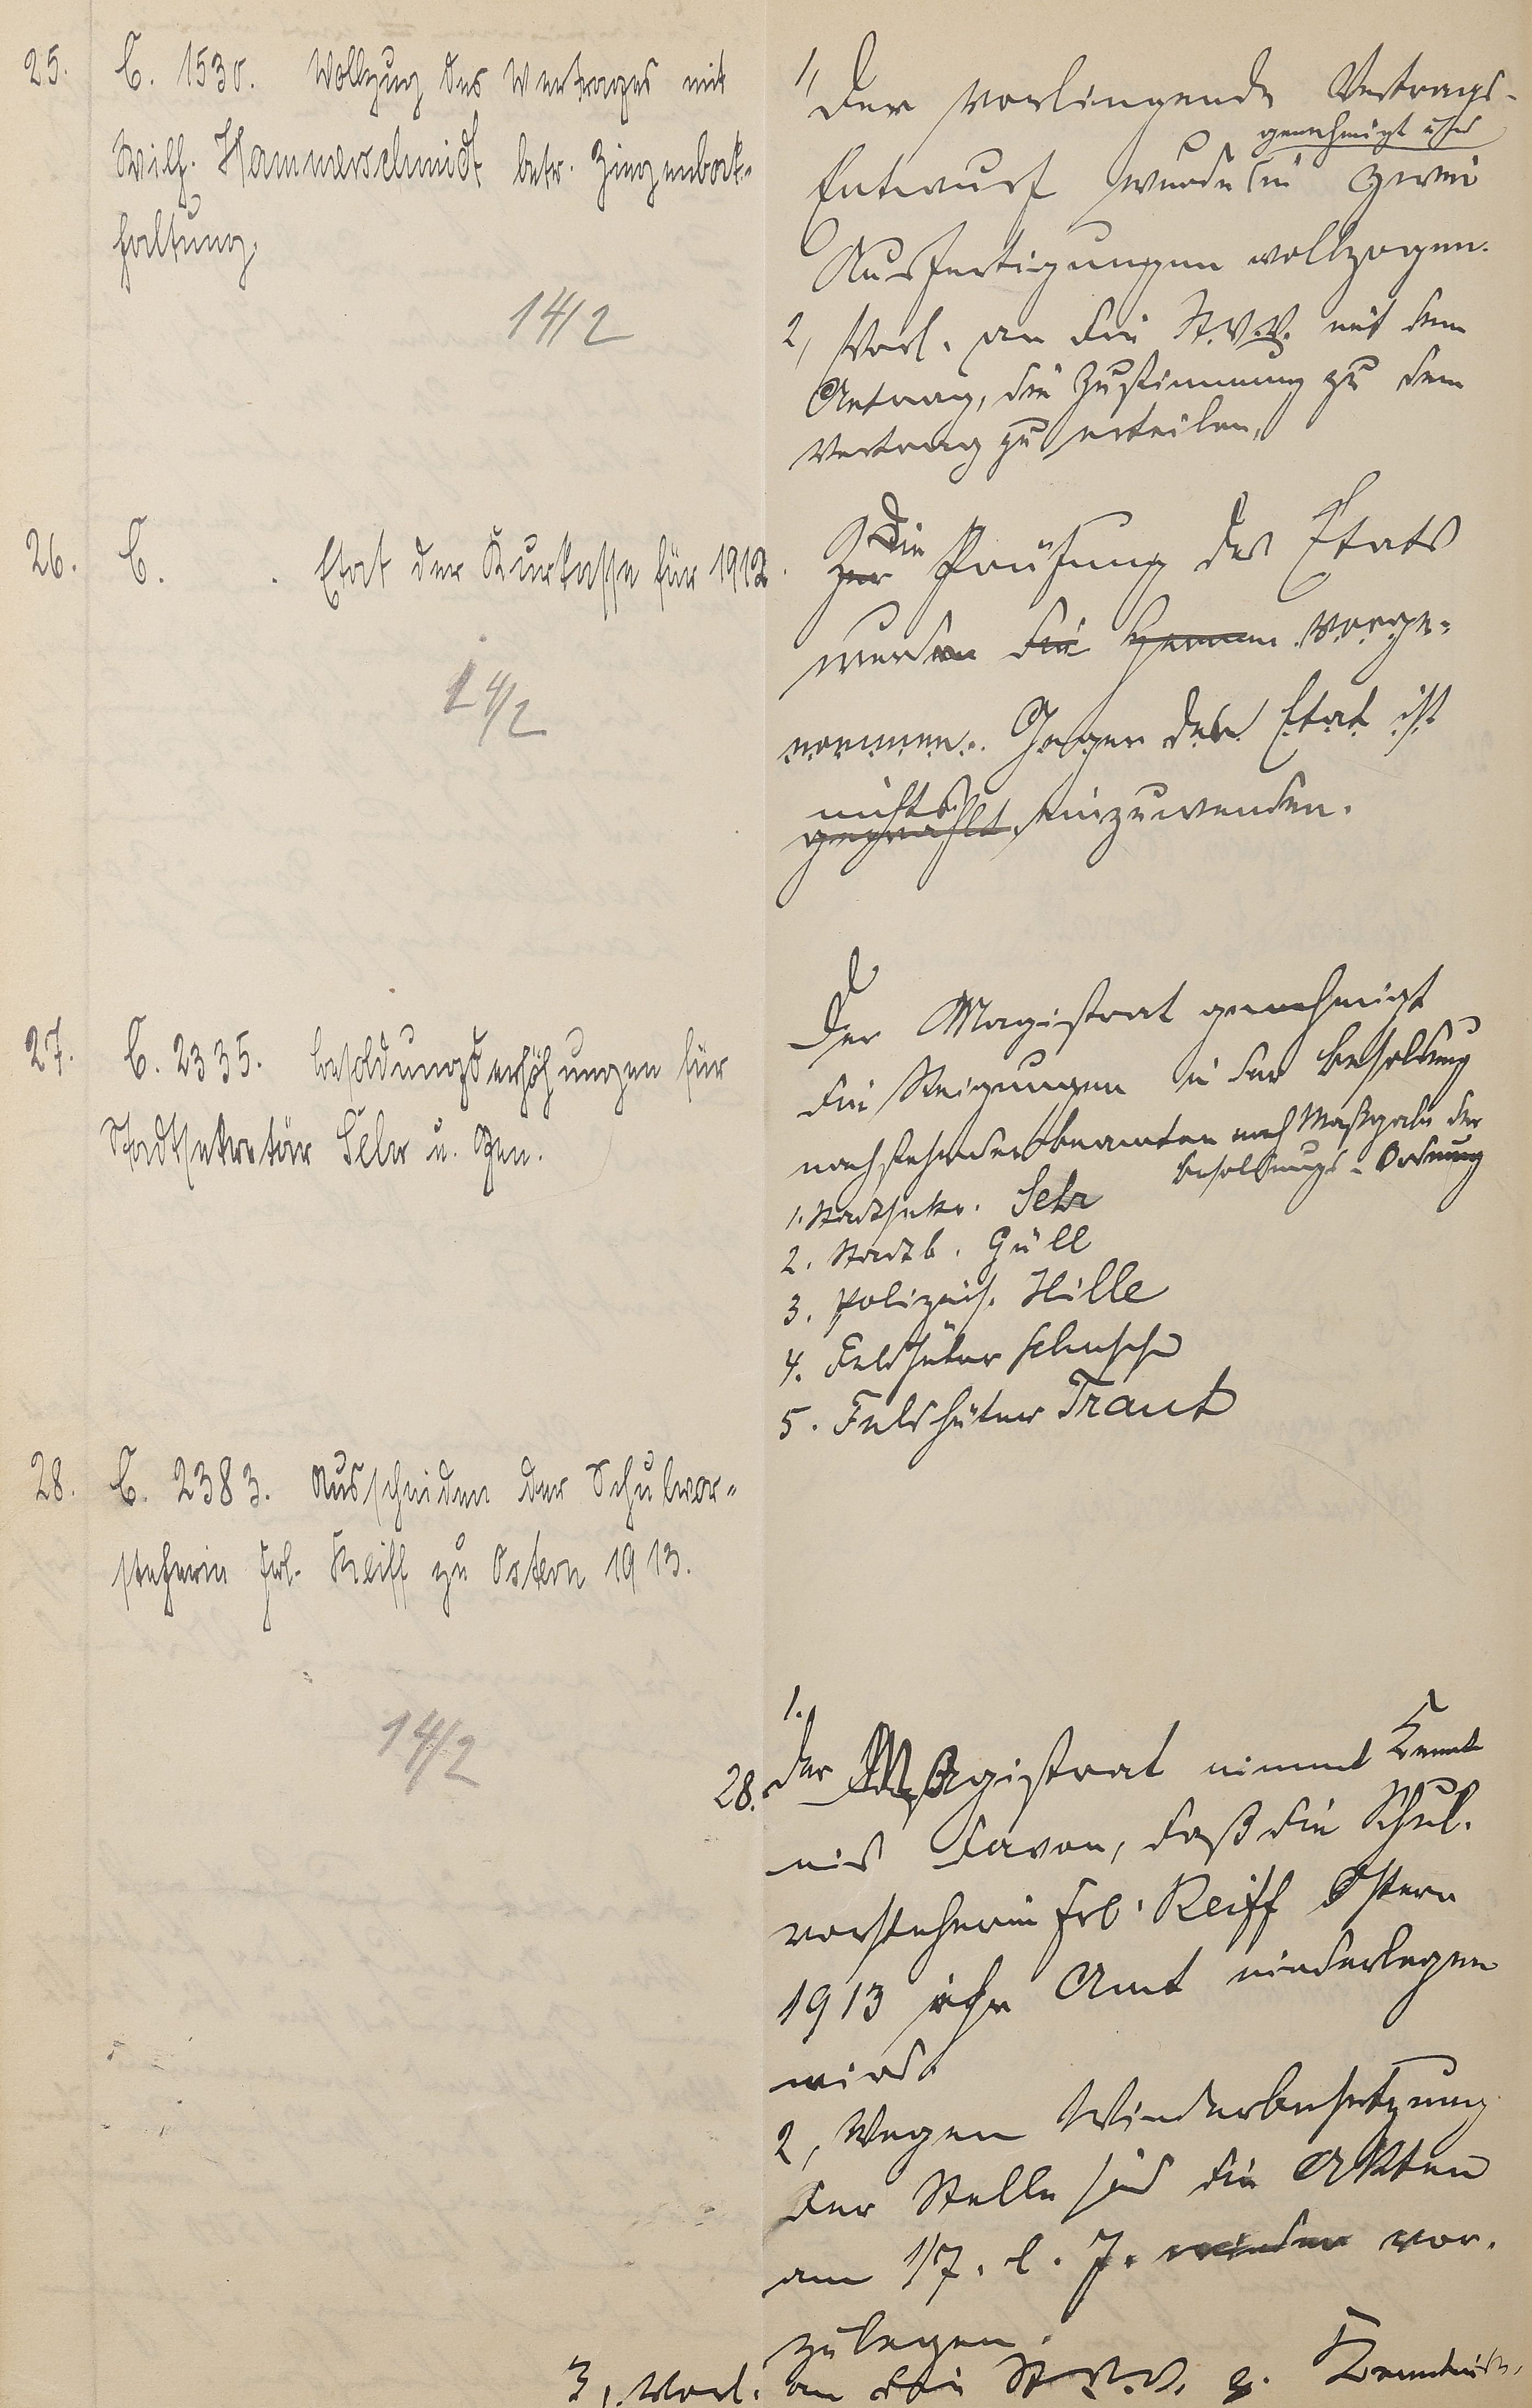 25. C. 1530. Vollzug des Vertrages mit
Wilh. Hammerschmidt betr. Ziegenbock-
haltung.
14/2
1, Der vorliegende Vertrags-
genehmigt und
Entwurf wurde in zwei
Ausfertigungen vollzogen.
2, Vorl. an die St.V.V. mit dem
Antrag, die Zustimmung zu dem
Vertrag zu erteilen.
26. C. . Etat der Kurkasse für 1912.
14/2
Die
Zur Prüfung des Etats
werden die Herren vorge-
nommen. Gegen den Etat ist
nichts
gewählt einzuwenden.
27. C. 2335. Besoldungserhöhungen für
Stadtsekretär Sehr u. Gen.
Der Magistrat genehmigt
die Steigungen in der Besoldung
nachstehender Beamten nach Maßgabe der
Besoldungs-Ordnung
1. Stadtsekr. Sehr
2. Stadtb. Güll
3. Polizeis. Hille
4. Feldhüter
5. Feldhüter Traut
28. C. 2383. Ausscheiden der Schulvor-
steherin Frl. Reiff zu Ostern 1913.
14/2
1.
28. Der Magistrat nimmt Kennt-
nis davon, daß die Schul-
vorsteherin Frl. Reiff Ostern
1913 ihr Amt niederlegen
wird.
2, Wegen Wiederbesetzung
der Stelle sind die Akten
am 1/7. l. J. wieder vor-
zulegen.
3, Vorl. an die St.V.V. z. Kenntnis.